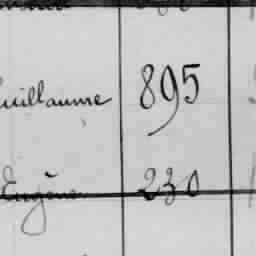 uillaume 895
Eugène 230